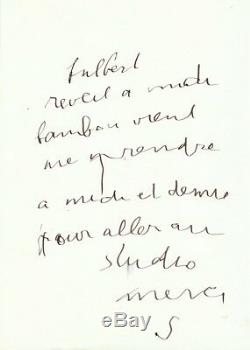 Fulbert
reveil a midi
bambou vient
me prendre
a midi et demie
pour aller au
studio
merci
S
ebay